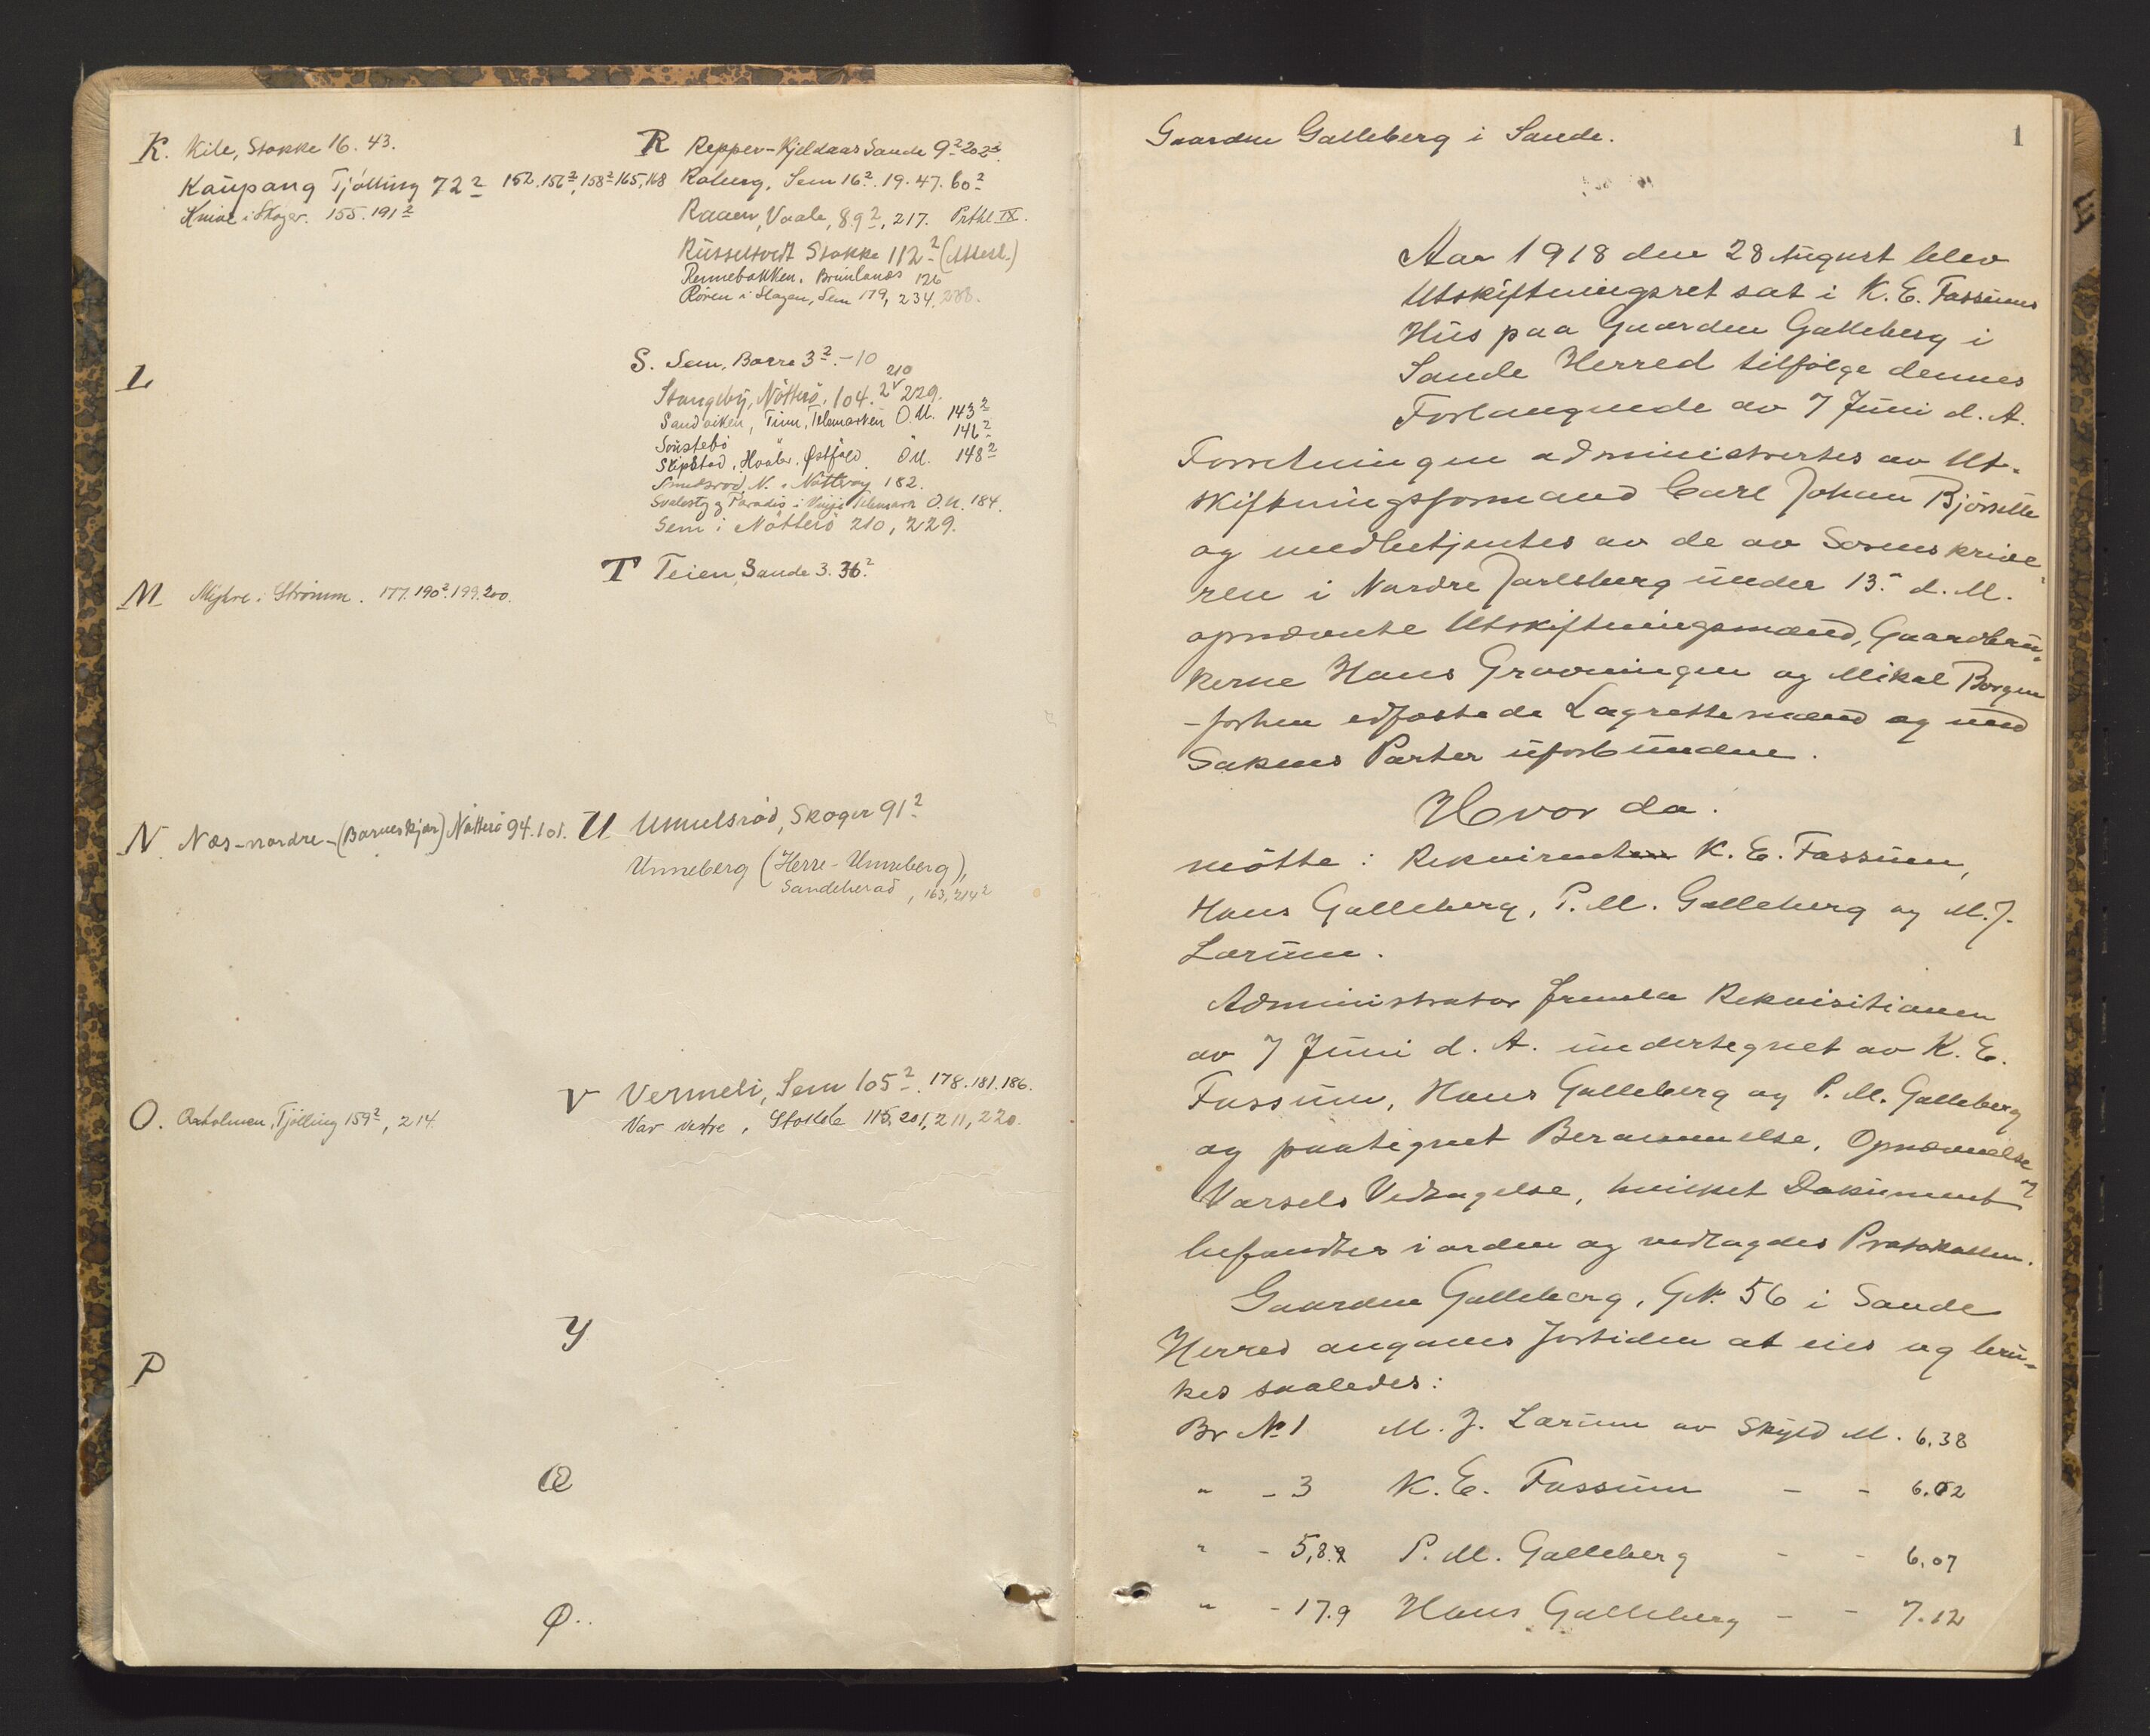 K. Kile, Stokke 16. 43.
Kaupang Tjölling 72² 152. 156², 158² 165, 168
Knive i Skoger. 155. 191²
L
M Myhre i Strömm. 177. 190². 199. 200.
N Næs-nordre-(Barneskjær) Nötterö 94. 101.
O. Oxholmen, Tjölling 159², 214.
P
R Repper-Kjeldaas Sande 9² 202²
Raberg, Sem 16². 19. 47. 60²
Raaen, Vaale, 89², 217. Prtkl IX.
Russeltvedt Stokke 112² (Attest.)
Rennebakken. Brunlanes 126
Roren i Slagen, Sem 179, 234, 238.
S. Sem, Borre 3². - 10
210
Stangeby, Nötterö, 104. 2 229.
Sandviken, Tinn, Telemarken O.U. 143²
Soustebö " " 146²
Skipstad, Hvaler. Østfold. O.U. 148²
Smidsrod, N. Nötteröy 182.
Svalestg og Paradis i Vinje Telemark O.U. 184.
Sem i Nötterö 210, 229.
T Teien, Sande 3. 36²
U Ummelsröd, Skoger 91²
Unneberg (Herre-Unneberg),
Sandeherad, 163, 214²
V Vermeli, Sem 105². 178. 181. 186.
Var vestre, Stokke 115, 201, 211, 220.
Y
Æ
Ø..
1
Gaarden Galleberg i Sande.
Aar 1918 den 28 August blev
Utskiftningsret sat i K. E. Fossums
Hus paa Gaarden Galleberg i
Sande Herred tilfølge dennes
Forlangende av 7 Juni d. A.
Forretningen administrertes av Ut-
skiftningsformand Carl Johan Bjørsette
og medbetjentes av de av Sorenskrive-
ren i Nordre Jarlsberg under 13. d. M.
opnævnte Utskiftningsmænd, Gaardbru-
kerne Hans Gravningen og Mikal Borgen
- forhen edfæstede Lagrettemænd og med
Sakens Parter uforbundne.
Hvor da:
møtte: Rekvirenten K. E. Fossum,
Hans Galleberg, P. M. Galleberg og M. J.
Lærum.
Administrator fremla Rekvisitionen
av 7 Juni d. A. undertegnet av K. E.
Fossum, Hans Galleberg og P. M. Galleberg
og paategnet Berammelse, Opnævnelse
og
Varsels Vedtagelse, hvilket Dokument
befandtes i orden og vedlagdes Protokollen.
Gaarden Galleberg, GN. 56 i Sande
Herred angaves fortiden at eies og bru-
kes saaledes:
Br № 1 M. J. Lærum av Skyld M. 6,38
" - 3 K. E. Fossum - - 6.02
" - 5,8.9 P. M. Galleberg - - 6,07
" - 17.9 Hans Galleberg - - 7.12